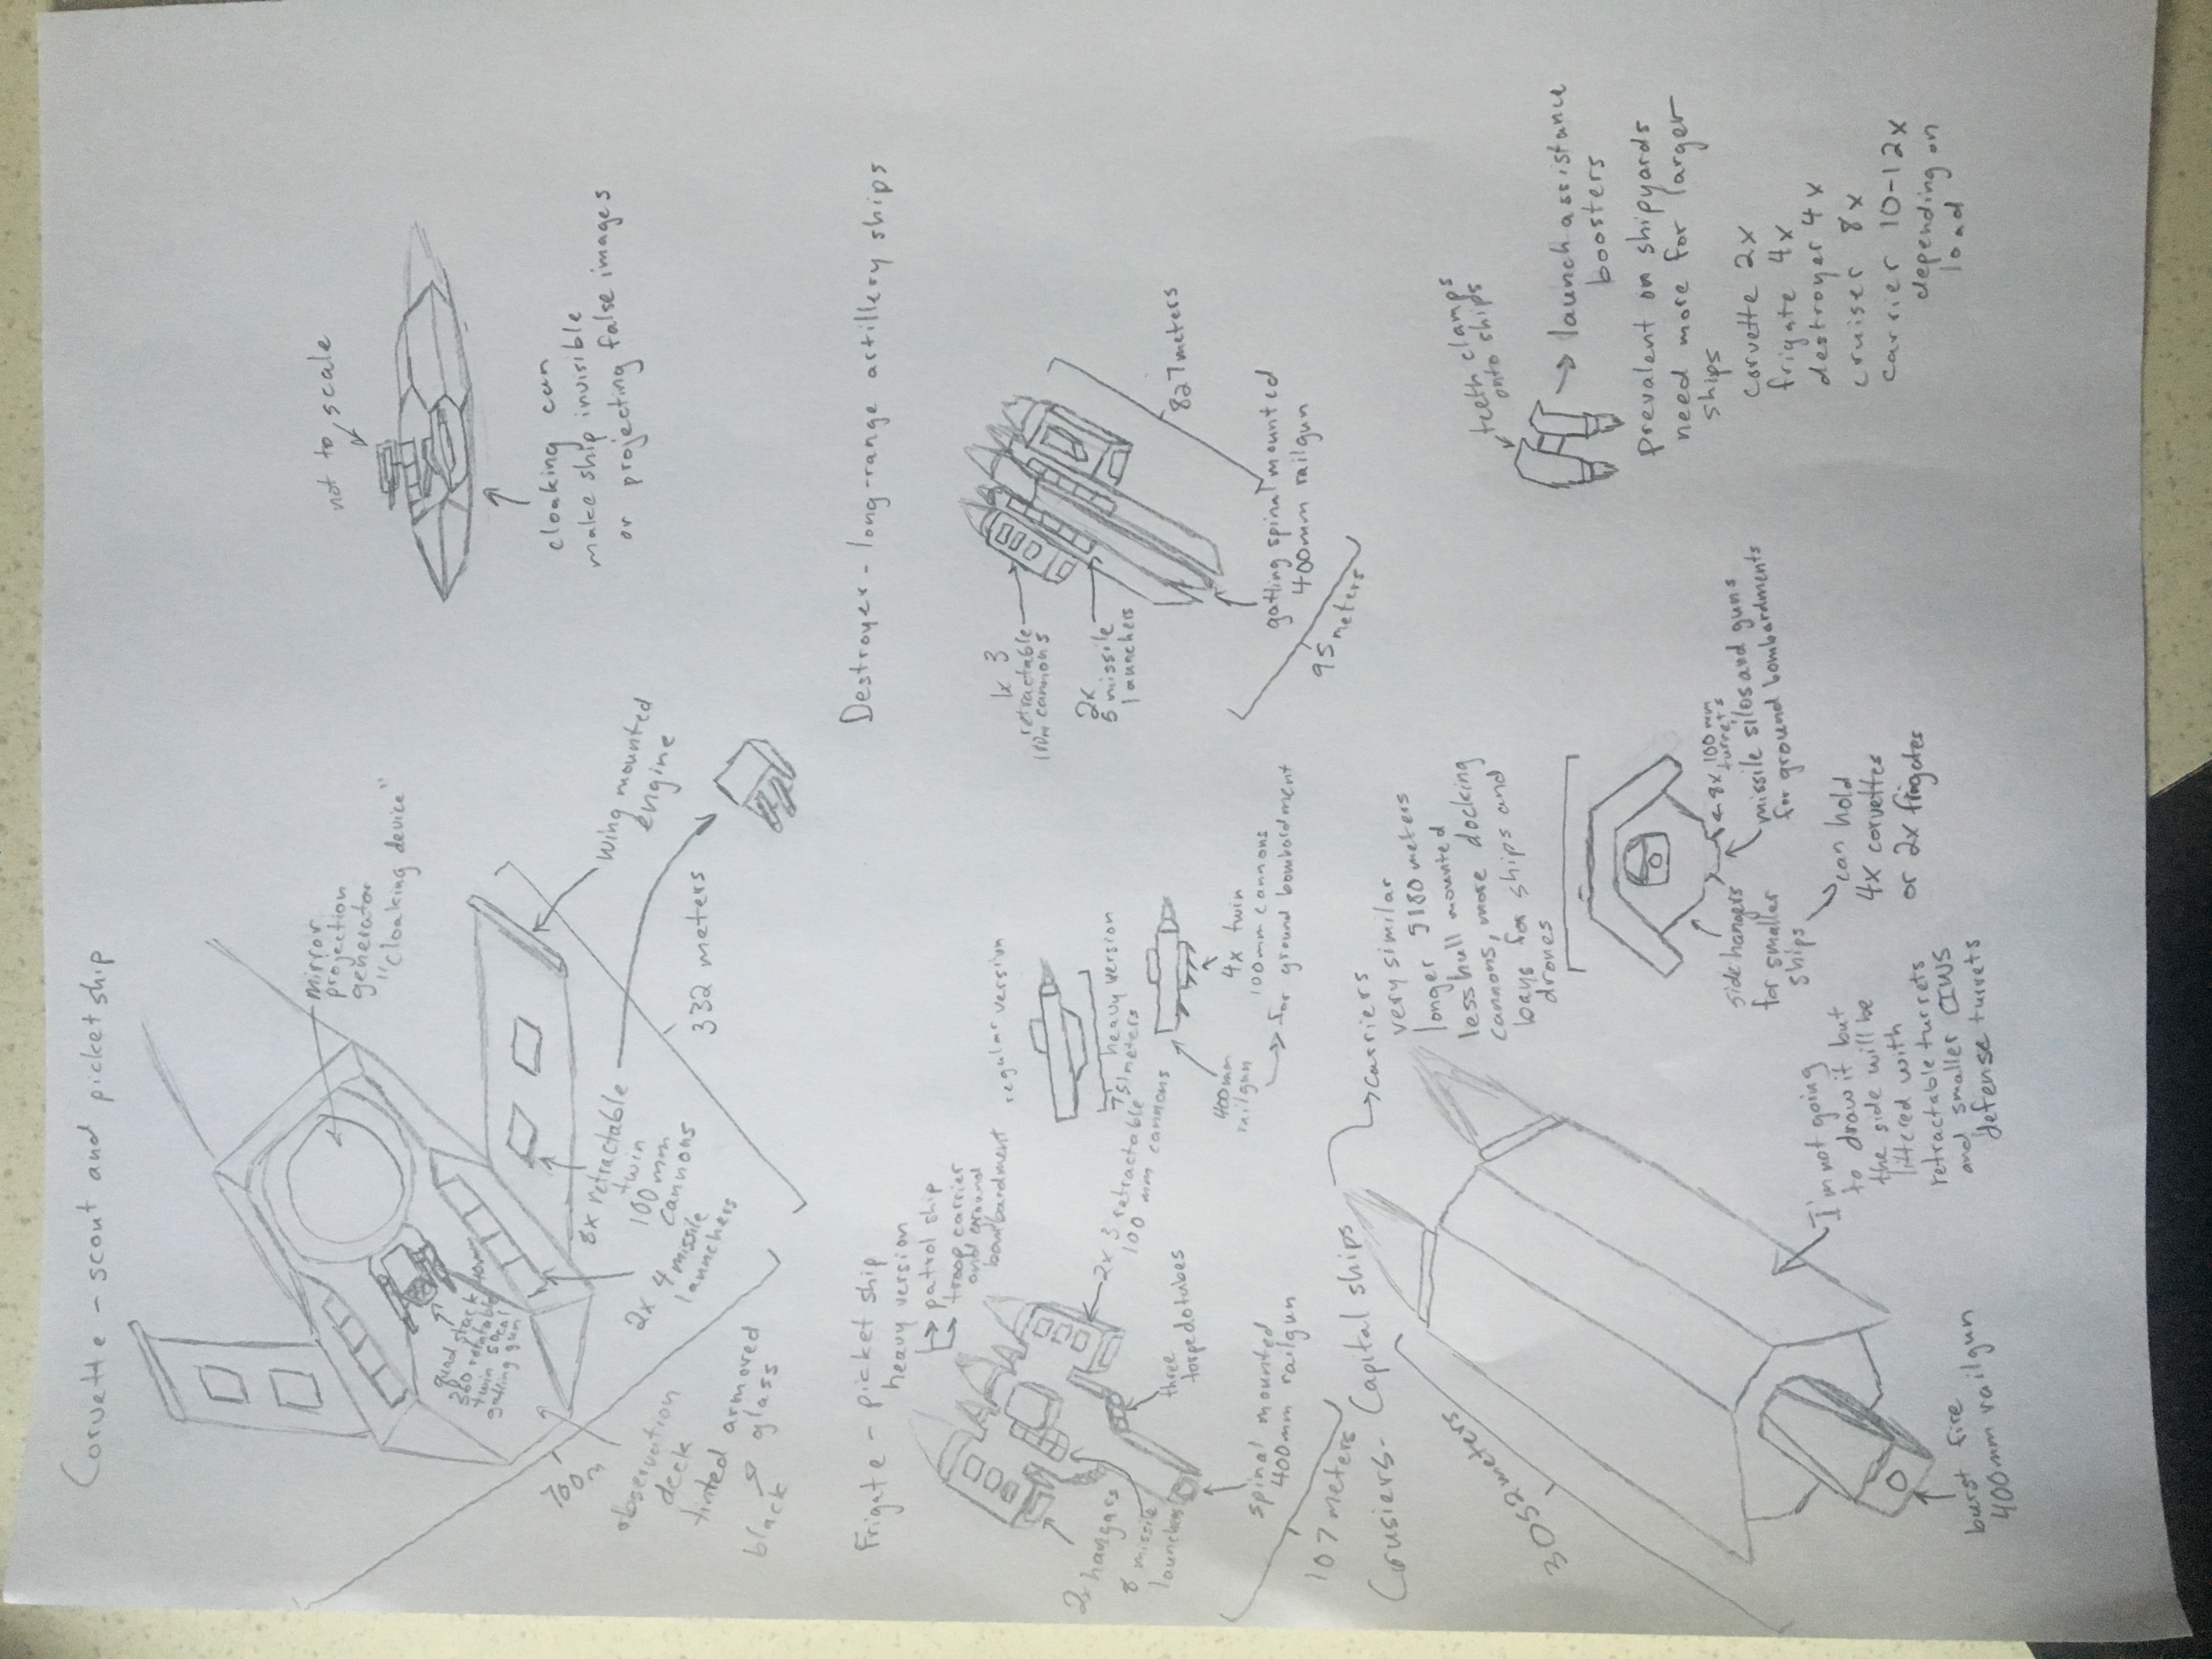 Corvette - scout and picket ship
mirror
projection
generator
"cloaking device"
quad stack 40mm
360 rotatable
twin 50cal
gatling gun
700m
observation
deck
tinted armored
glass
black
2x 4 missile
launchers
8x retractable
twin
100 mm
cannons
wing mounted
engine
332 meters
not to scale
cloaking can
make ship invisible
or projecting false images
Frigate - picket ship
heavy version
patrol ship
troop carrier
and ground
bombardment
2x hangars
8 missile
launchers
three
torpedo tubes
2x 3 retractable
100 mm cannons
spinal mounted
400mm railgun
107 meters
regular version
751 meters
heavy version
400mm
railgun
4x twin
100mm cannons
for ground bombardment
Destroyer - long-range artillery ships
1x 3
retractable
cannons
2x
5 missile
launchers
827 meters
gatling spinal mounted
400mm railgun
95 meters
Crusiers - Capital ships
3052 meters
carriers
very similar
longer 5180 meters
less hull mounted
cannons, more docking
bays for ships and
drones
side hangers
for smaller
ships
can hold
4x corvettes
or 2x frigates
8x 100 mm
turrets
missile silos and guns
for ground bombardments
I'm not going
to draw it but
the side will be
littered with
retractable turrets
and smaller CIWS
defense turrets
burst fire
400mm railgun
teeth clamps
onto ships
launch assistance
boosters
prevalent on shipyards
need more for larger
ships
corvette 2x
frigate 4x
destroyer 4x
cruiser 8x
carrier 10-12x
depending on
load